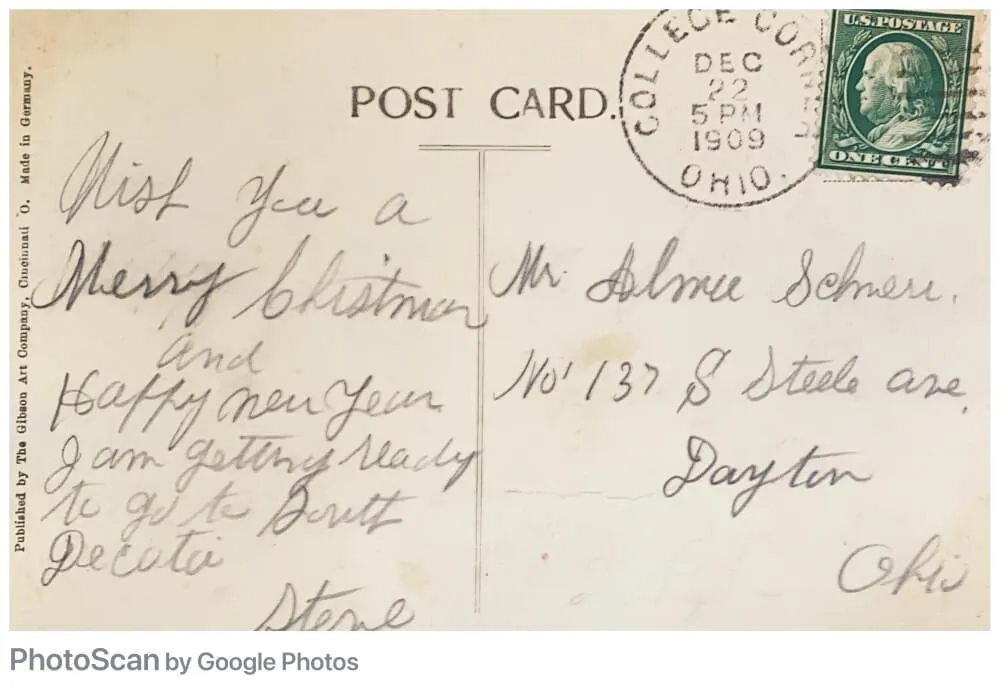 Published by The Gibson Art Company, Cincinnati O. Made in Germany.
POST CARD.
COLLEGE CORNER
DEC
22
5 PM
1909
OHIO.
U.S. POSTAGE
ONE CENT
Wish you a
Merry Christmas
and
Happy new Year
I am getting ready
to go to South
Decota
Steve
Mr.
No' 137 S Steele ave.
Dayton
Ohio
PhotoScan by Google Photos